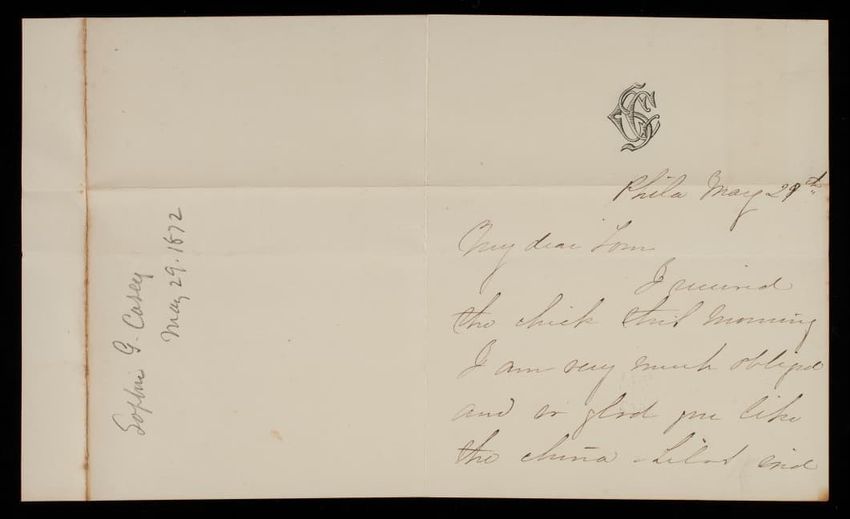 Sophie G. Casey
May 29. 1872
Phila May 29th
My dear Tom
I received
the check this morning
I am very much obliged
and so glad you like
the china - did